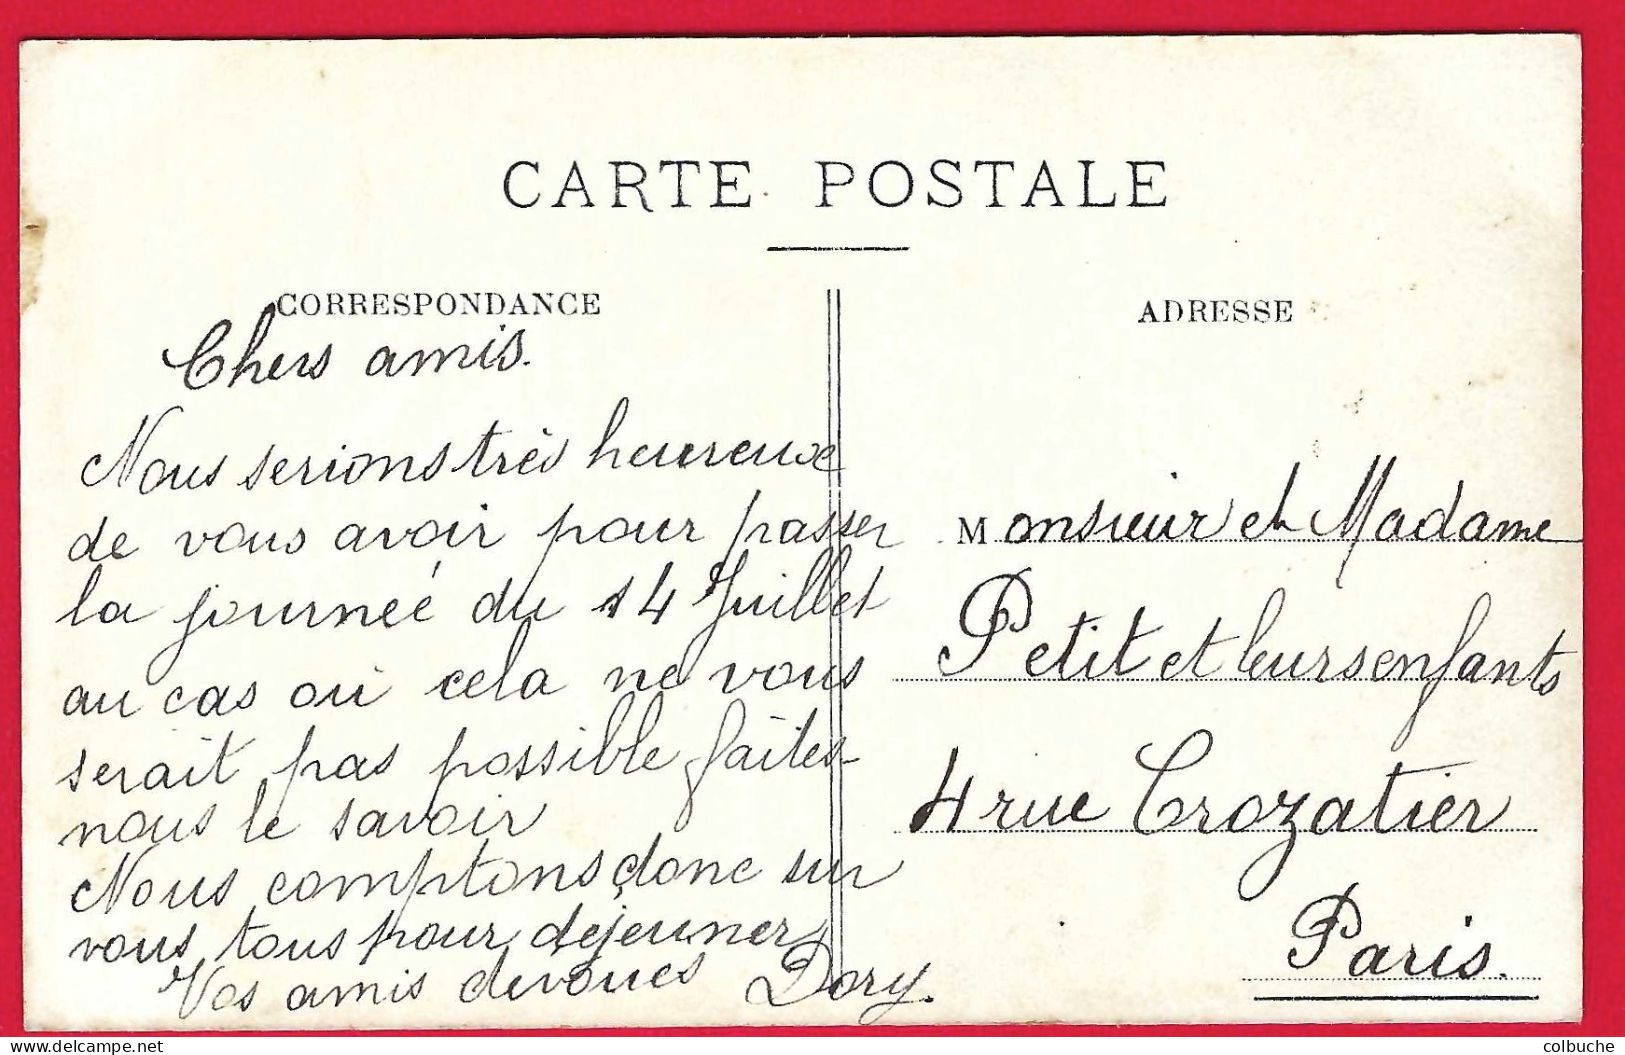 CARTE POSTALE
CORRESPONDANCE
Chers amis.
Nous serions très heureuxe
de vous avoir pour passer
la journée du 14 Juillet
au cas où cela ne vous
serait pas possible faites-
nous le savoir
Nous comptons donc sur
vous tous pour dejeuner
Vos amis devoues Dory.
ADRESSE
Monsieur et Madame
Petit et leurs enfants
4 rue Crozatier
Paris.
www.delcampe.net
colbuche